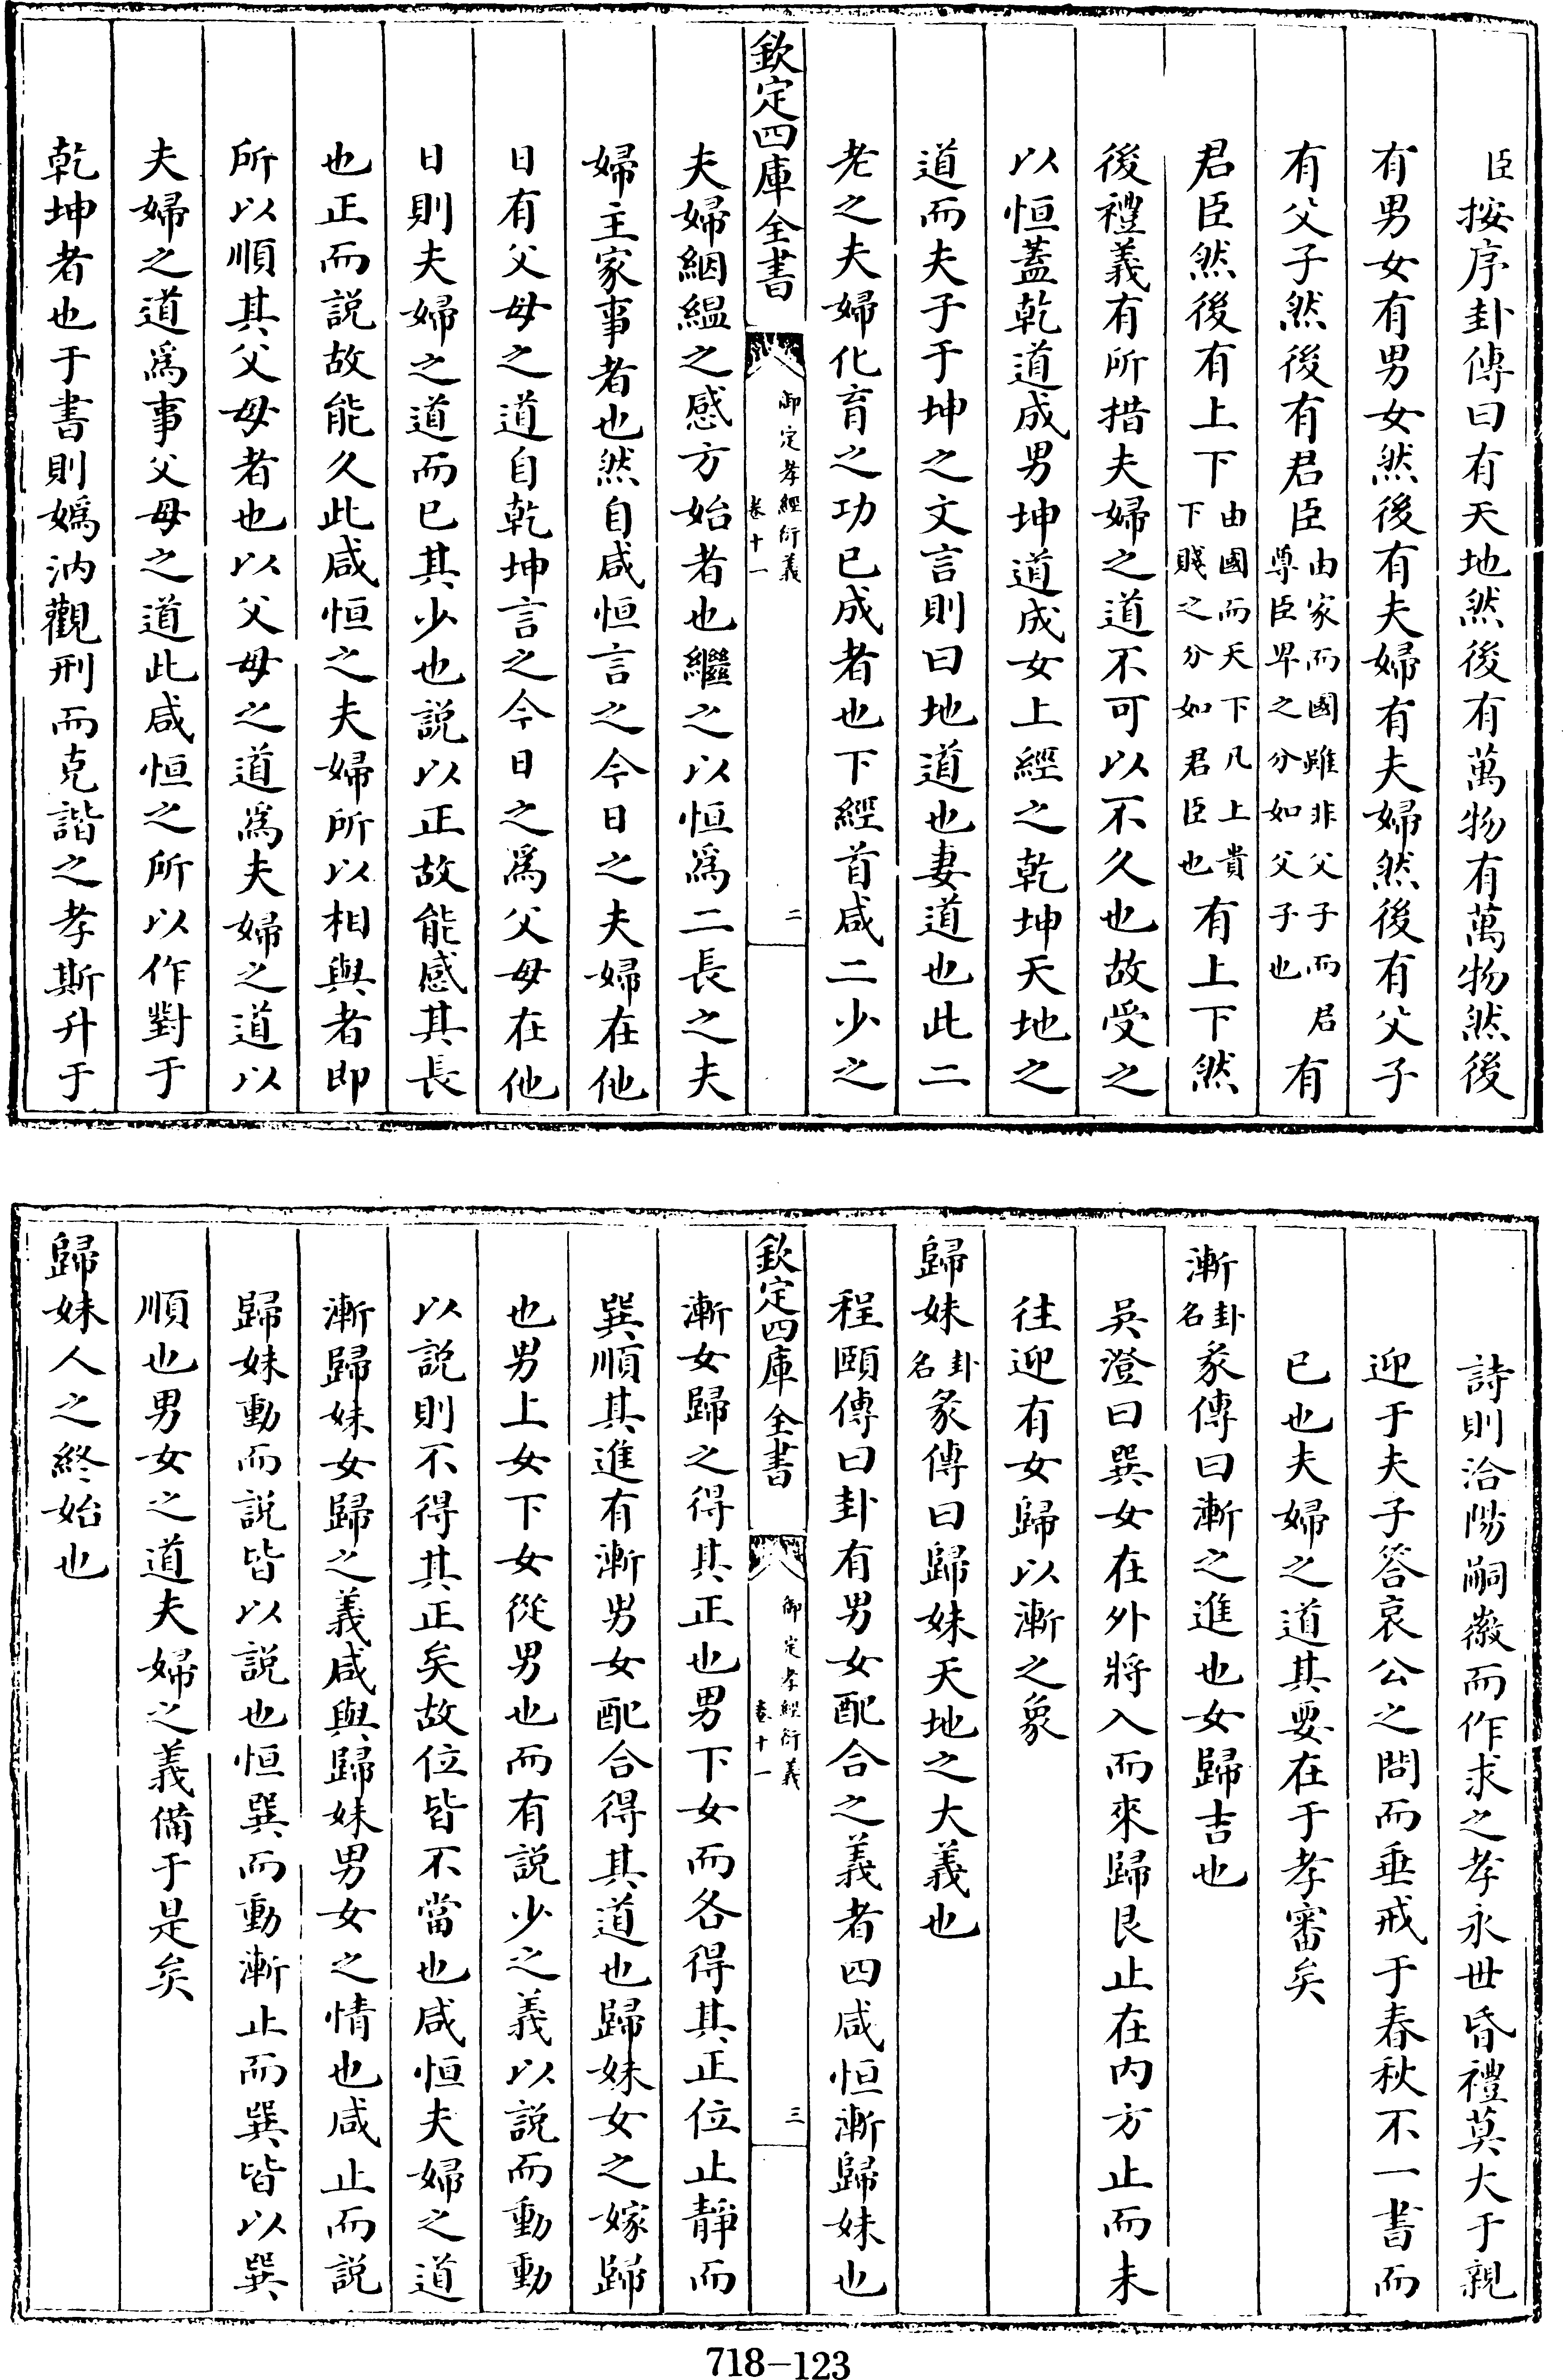 臣按序卦傳曰有天地然後有萬物有萬物然後
有男女有男女然後有夫婦有夫婦然後有父子
有父子然後有君臣由家而國雖非父子而君尊臣卑之分如父子也有
君臣然後有上下由國而天下凡上貴下賤之分如君臣也有上下然
後禮義有所措夫婦之道不可以不久也故受之
以恒蓋乾道成男坤道成女上經之乾坤天地之
道而夫子于坤之文言則曰地道也妻道也此二
老之夫婦化育之功已成者也下經首咸二少之
欽定四庫全書 御定孝經衍義 卷十一 二
夫婦絪縕之感方始者也繼之以恒為二長之夫
婦主家事者也然自咸恒言之今日之夫婦在他
日有父母之道自乾坤言之今日之為父母在他
日則夫婦之道而已其少也説以正故能感其長
也正而説故能久此咸恒之夫婦所以相與者即
所以順其父母者也以父母之道為夫婦之道以
夫婦之道為事父母之道此咸恒之所以作對于
乾坤者也于書則嬀汭觀刑而克諧之孝斯升于
詩則洽陽嗣徽而作求之孝永世昏禮莫大于親
迎于夫子答哀公之問而垂戒于春秋不一書而
已也夫婦之道其要在于孝審矣
漸卦名彖傳曰漸之進也女歸吉也
吳澄曰巽女在外將入而來歸艮止在内方止而未
往迎有女歸以漸之象
歸妹卦名彖傳曰歸妹天地之大義也
程頤傳曰卦有男女配合之義者四咸恒漸歸妹也
欽定四庫全書 御定孝經衍義 卷十一 三
漸女歸之得其正也男下女而各得其正位止靜而
巽順其進有漸男女配合得其道也歸妹女之嫁歸
也男上女下女從男也而有説少之義以説而動動
以説則不得其正矣故位皆不當也咸恒夫婦之道
漸歸妹女歸之義咸與歸妹男女之情也咸止而説
歸妹動而説皆以説也恒巽而動漸止而巽皆以巽
順也男女之道夫婦之義備于是矣
歸妹人之終始也
718-123